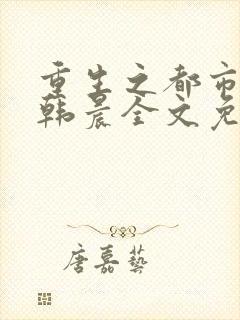 重生之都市
韩晨全文免
唐嘉艺